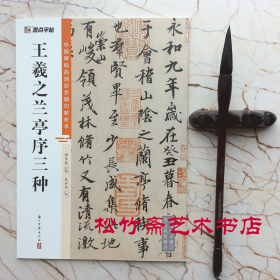 墨点字帖
中国碑帖高清彩色精印解析本
王羲之兰亭序三种
永和九年歲在癸丑暮春
于會稽山陰之蘭亭脩禊事
也群賢畢至少長咸集此地
有峻領茂林脩竹又有清流激
松竹斋艺术书店